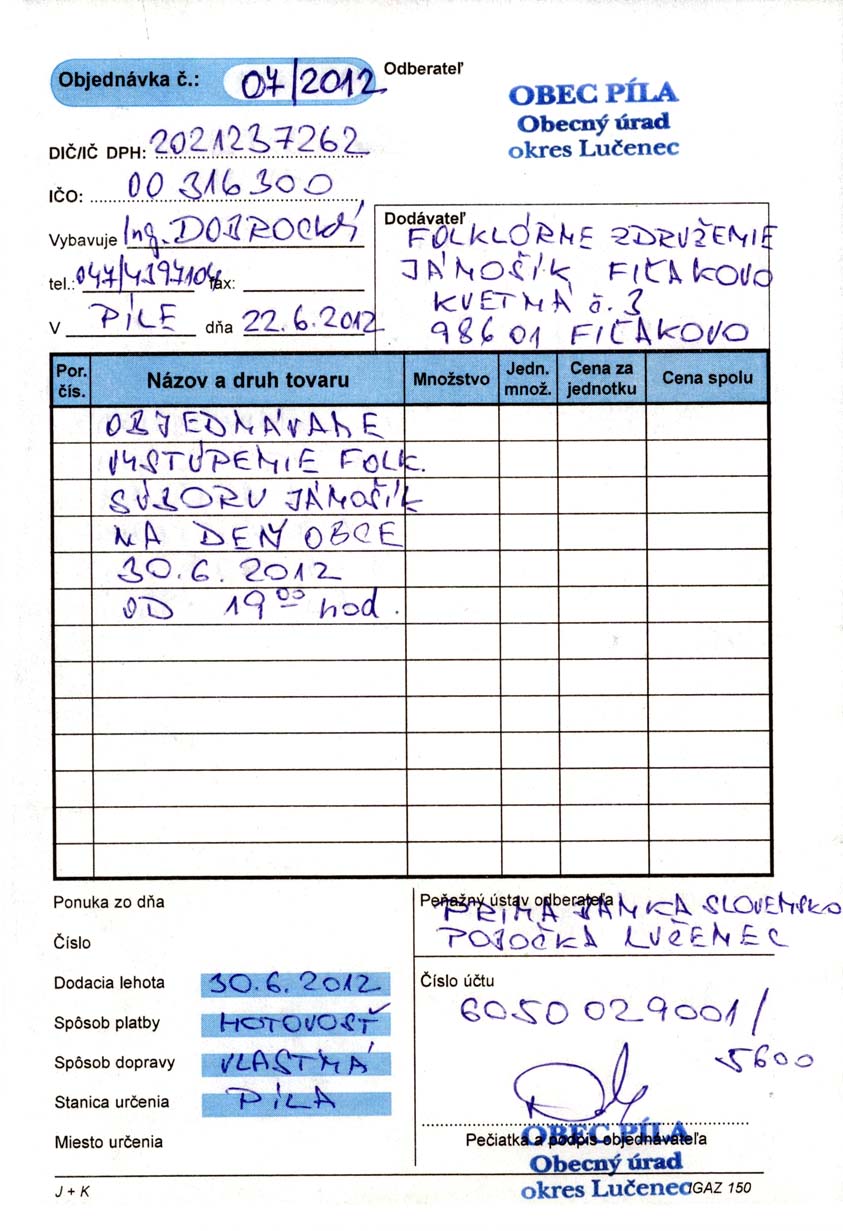 Objednávka č.: 04/2012
Odberateľ
OBEC PÍLA
Obecný úrad
okres Lučenec
DIČ/IČ DPH: 2021237262
IČO: 00 316300
Vybavuje Ing. DOBROCKÝ
tel.: 047/4397104 fax:
V PÍLE dňa 22.6.2012
Dodávateľ
FOLKLÓRNE ZDRUŽENIE
JÁNOŠÍK FIĽAKOVO
KVETNÁ č. 3
986 01 FIĽAKOVO
Por. čís. Názov a druh tovaru Množstvo Jedn. množ. Cena za jednotku Cena spolu
OBJEDNÁVAME
VYSTÚPENIE FOLK.
SÚBORU JÁNOŠÍK
NA DEŇ OBCE
30.6.2012
OD 19⁰⁰ hod.
Ponuka zo dňa
Číslo
Dodacia lehota 30.6.2012
Spôsob platby HOTOVOSŤ
Spôsob dopravy VLASTNÁ
Stanica určenia PÍLA
Miesto určenia
Peňažný ústav odberateľa
PRIMA BANKA SLOVENSKO
POBOČKA LUČENEC
Číslo účtu
6050029001/
5600
Pečiatka a podpis objednávateľa
OBEC PÍLA
Obecný úrad
okres Lučenec
J + K
IGAZ 150